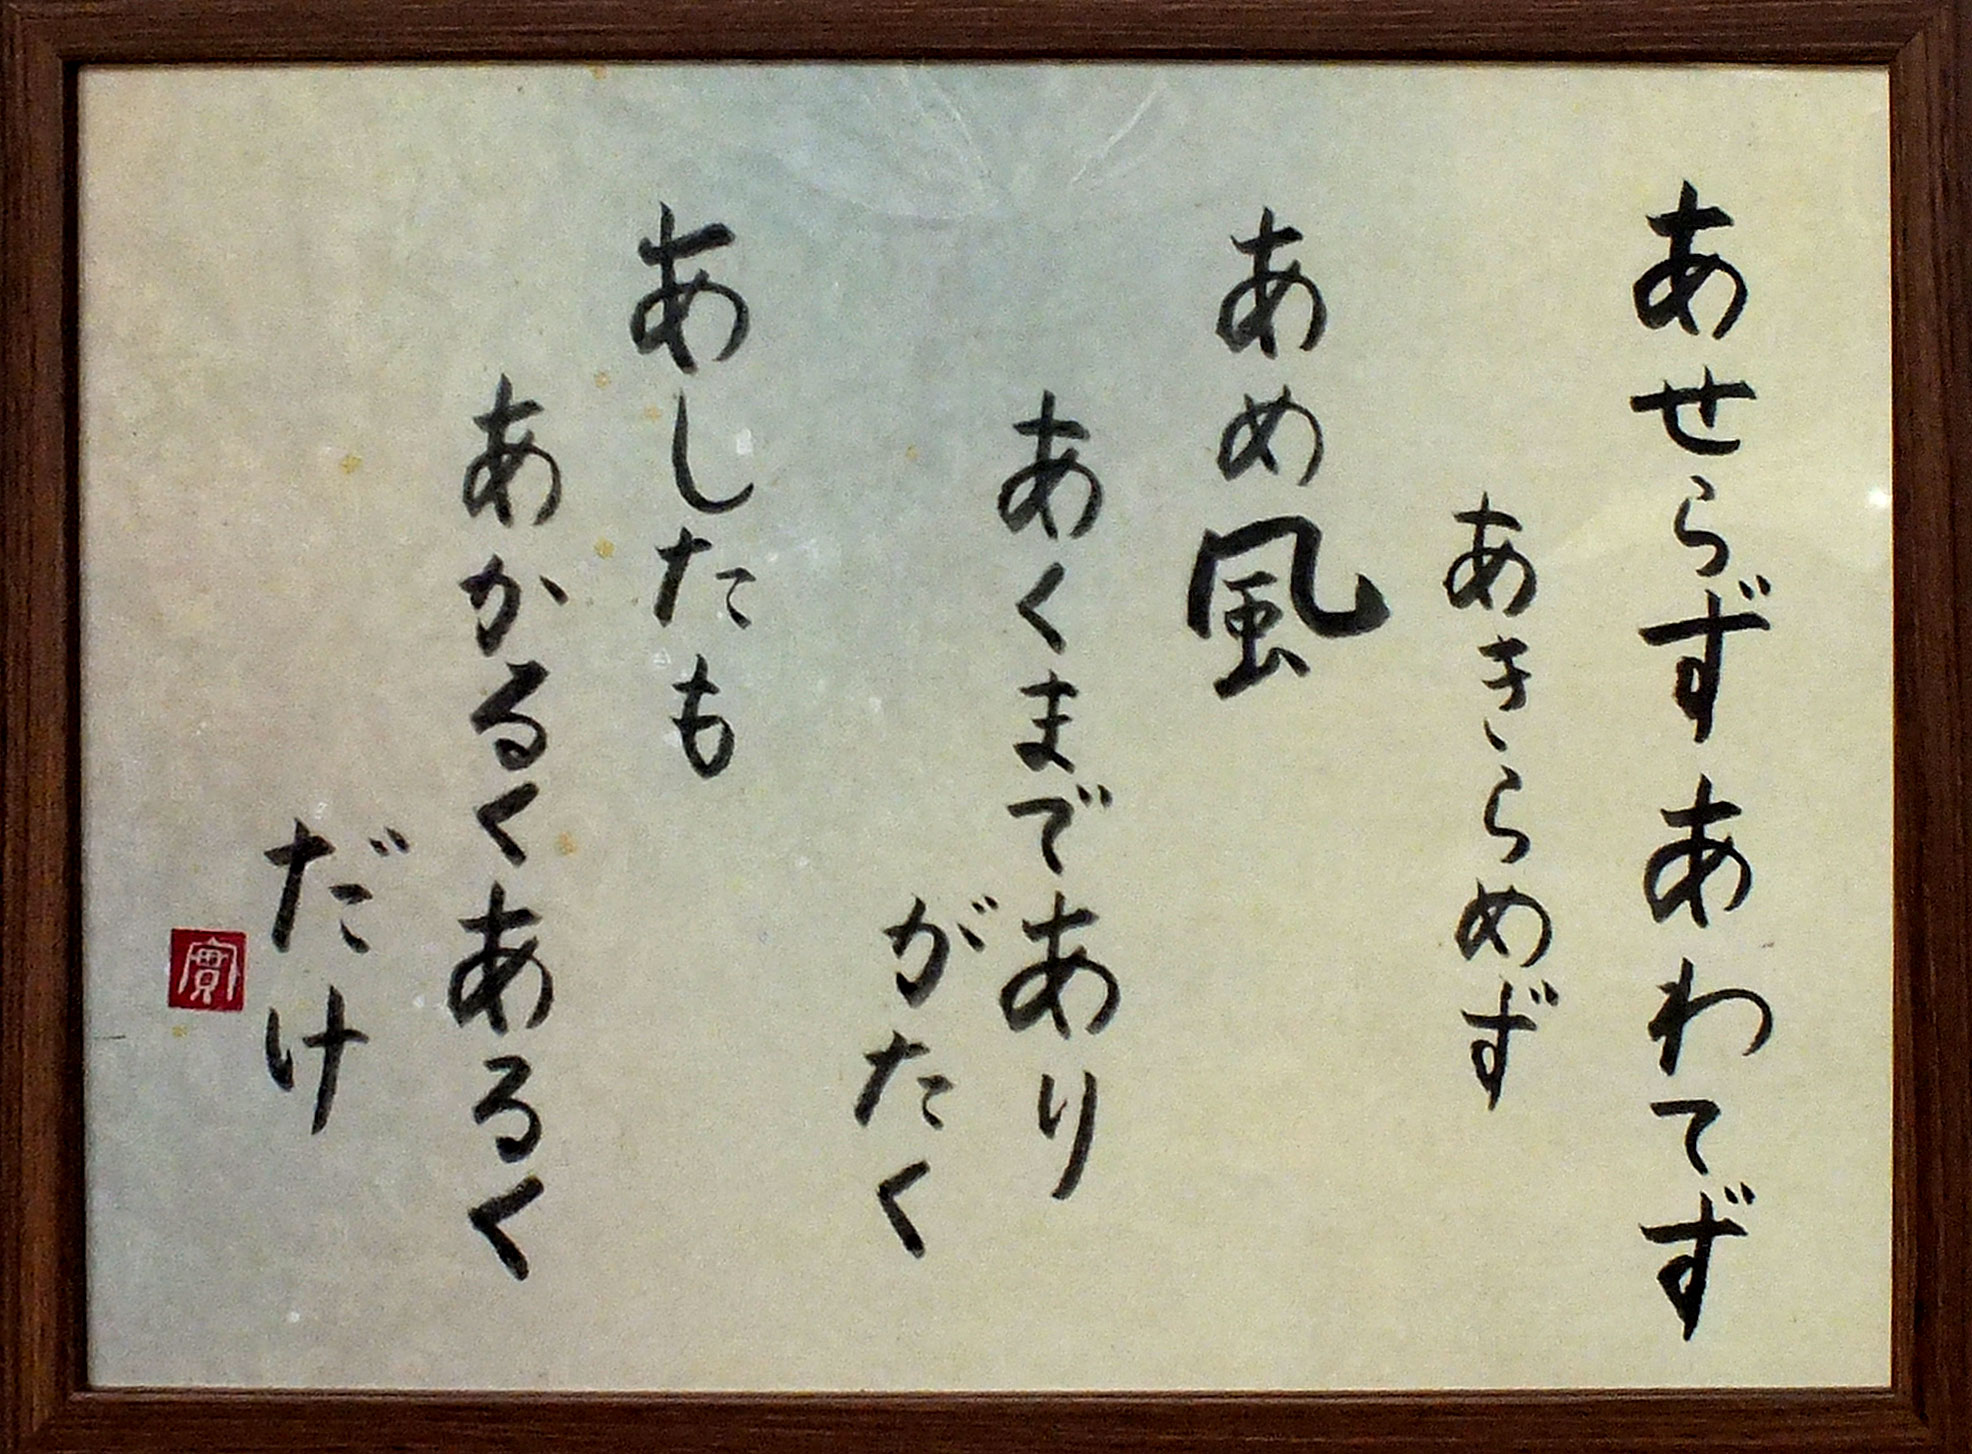 あせらずあわてず
あきらめず
あめ風
あくまであり
がたく
あしたも
あかるくあるく
だけ
實